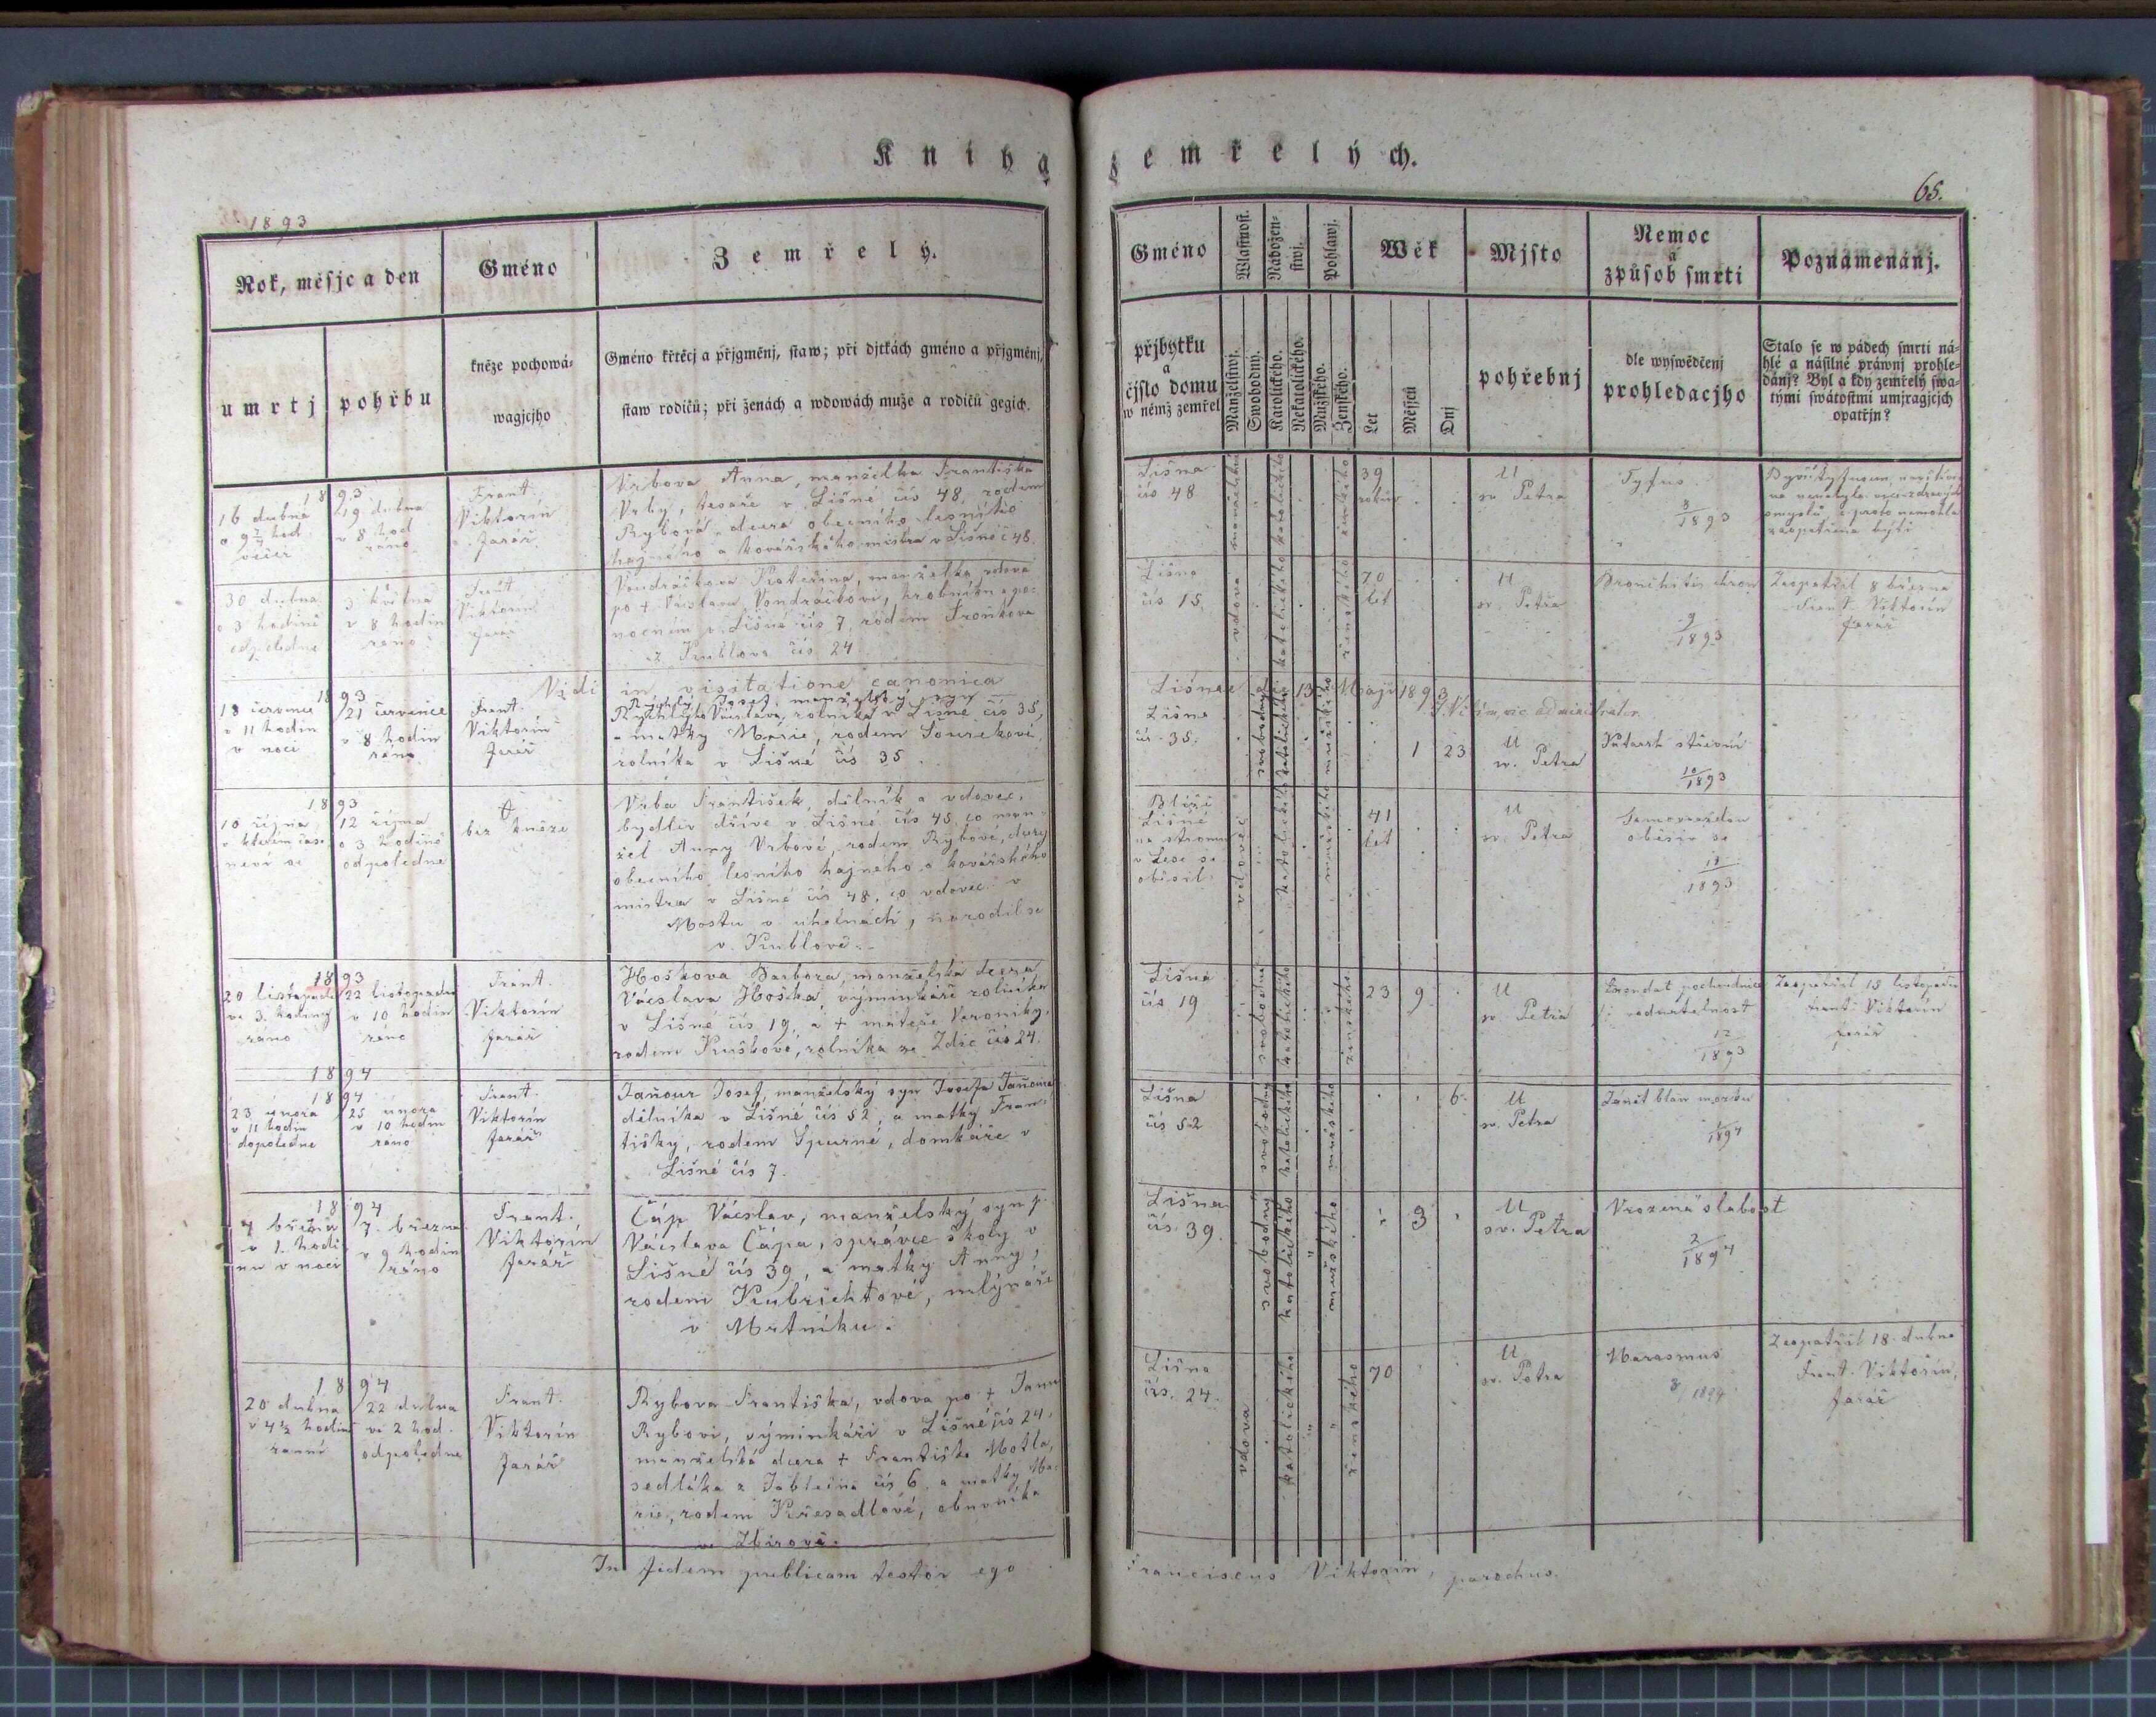 Kniha zemřelých.
1893
65.
Rok, měsjc a den
Gméno
Zemřelý.
umrtj
pohřbu
kněze pochowá-
wagjcjho
Gméno křtěcj a přjgměnj, staw; při djtkách gméno a přjgměnj,
staw rodičů; při ženách a wdowách muže a rodičů gegich.
Gméno
přjbytku
a
čjslo domu
w němž zemřel
Wlastnost.
Manželstwj.
Swobodny.
Nábožen-
stwj.
Katolického.
Nekatolického.
Pohlawj.
Mužského.
Ženského.
Wěk
Let
Měsjců
Dnj
Mjsto
pohřebnj
Nemoc
a
způsob smrti
dle wyswědčenj
prohledacjho
Poznamenánj.
Stalo se w pádech smrti ná-
hlé a násilné práwnj prohle-
dánj? Byl a kdy zemřelý swa-
tými swátostmi umjragjcjch
opatřjn?
1893
16 dubna
večer
19 dubna
v 8 hod
ráno
Frant.
Viktorín
farář
Vrbova Anna, manželka Františka
Vrby, tesaře v Lišné čís 48, rodem
Rybová, dcera obecního lesního
hajného a kovářského mistra v Lišné č 48.
Lišná
čís 48
manželka
katolického
ženského
39
roků
U
sv. Petra
Tyfus.
3/1893
30 dubna
o 3 hodině
odpoledne
3 května
v 8 hodin
ráno
Frant
Viktorín
farář
Vondráčkova Kateřina, manželka vdova
po + Václavu Vondráčkovi, hrobníku a po-
nocném v Lišné čís 7, rodem
z Kublova čís 24
Lišna
čís 15
vdova
katolického
ženského
70
let
U
sv. Petra
Bronchitis chron
9/1893
Zaopatřil 8 března
Frant. Viktorín
farář
Vidi in visitatione canonica
Lišnae 13 Maji 1893
vic. administrator.
1893
18 července
v 11 hodin
v noci
21 července
v 8 hodin
ráno
Frant.
Viktorín
farář
Rychlý Josef, manželský syn
Rychlýho Václava, rolníka v Lišné čís 35,
a matky Marie, rodem Sourekové,
rolníka v Lišné čís 35.
Lišna
čís 35.
svobodný
katolického
mužského
1 23
U
sv. Petra
Katarrh střevní
10/1893
1893
10 října
v kterém čase
neví se
12 října
o 3 hodině
odpoledne
†
bez kněze
Vrba František, dělník a vdovec,
bydlev dříve v Lišné čís 48 co man-
žel Anny Vrbové, rodem Rybové, dcery
obecního lesního hajného a kovářského
mistra v Lišné čís 48, co vdovec v
Mostu v uhelnách, narodil se
v Kublově.
Blíže
Lišné
na stromu
v lese se
oběsil.
vdovec
katolického
mužského
41
let
U
sv. Petra
Samovražda
oběsiv se
11/1893
1893
20 listopadu
ve 3. hodiny
ráno
22 listopadu
v 10 hodin
ráno
Frant.
Viktorín
farář
Hoškova Barbora, manželska dcera
Václava Hoška, výminkáře rolníka
v Lišné čís 19, a + mateře Veroniky,
rodem Kuškové, rolníka ze Zdic čís 24.
Lišná
čís 19
svobodná
katolického
ženského
23 9
U
sv. Petra
12/1893
Zaopatřil 15 listopadu
Frant. Viktorín
farář
1894
1894
23 února
v 11 hodin
dopoledne
25 února
v 10 hodin
ráno
Frant.
Viktorín
farář
Jaňour Josef, manželský syn Josefa Jaňoura
dělníka v Lišné čís 52, a matky Fran-
tišky, rodem Spurné, domkáře v
Lišné čís 7.
Lišna
čís 52
svobodný
katolického
mužského
6
U
sv. Petra
Zánět blan mozku
1/1894
1894
4 března
v 1. hodi
nu v noci
7. března
v 9 hodin
ráno
Frant.
Viktorín
farář
Čáp Václav, manželský syn p.
Václava Čápa, správce školy v
Lišné čís 39, a matky Anny,
rodem Kubrichtové, mlynáře
v Mrtníku.
Lišna
čís. 39.
svobodný
katolického
mužského
3
U
sv. Petra
Vrozená slabost
2/1894
1894
20 dubna
v 4 ½ hodin
ranní
22 dubna
ve 2 hod.
odpoledne
Frant.
Viktorín
farář
Rybova Františka, vdova po + Janu
Rybovi, výminkáři v Lišné čís 24,
manželská dcera + Františka Motla,
sedláka z Jablečna čís 6, a matky Ma-
rie, rodem Křesadlové, obuvníka
ve Zbirově.
Lišna
čís. 24.
vdova
katolického
ženského
70
U
sv. Petra
Marasmus
3/1894
Zaopatřil 18. dubna
Frant. Viktorín,
farář
In fidem publicam testor ego Franciscus Viktorin, parochus.